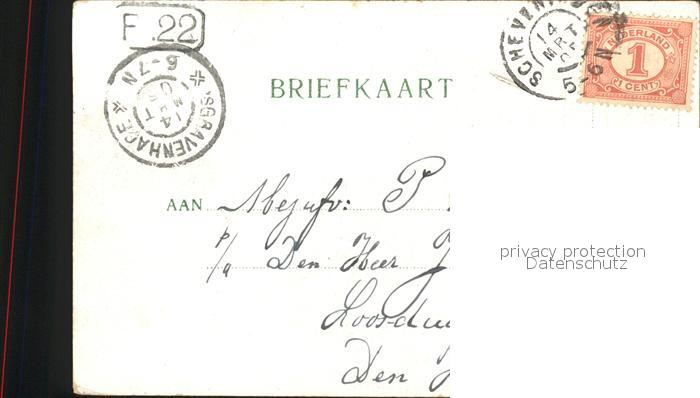 F. 22
'SGRAVENHAGE
14 MRT
6-7N
SCHEVENINGEN
14 MRT
5-6N
NEDERLAND
1
1 CENT
BRIEFKAART
AAN Mejufv: P
p/a Den Heer
Loosdu
Den
privacy protection
Datenschutz